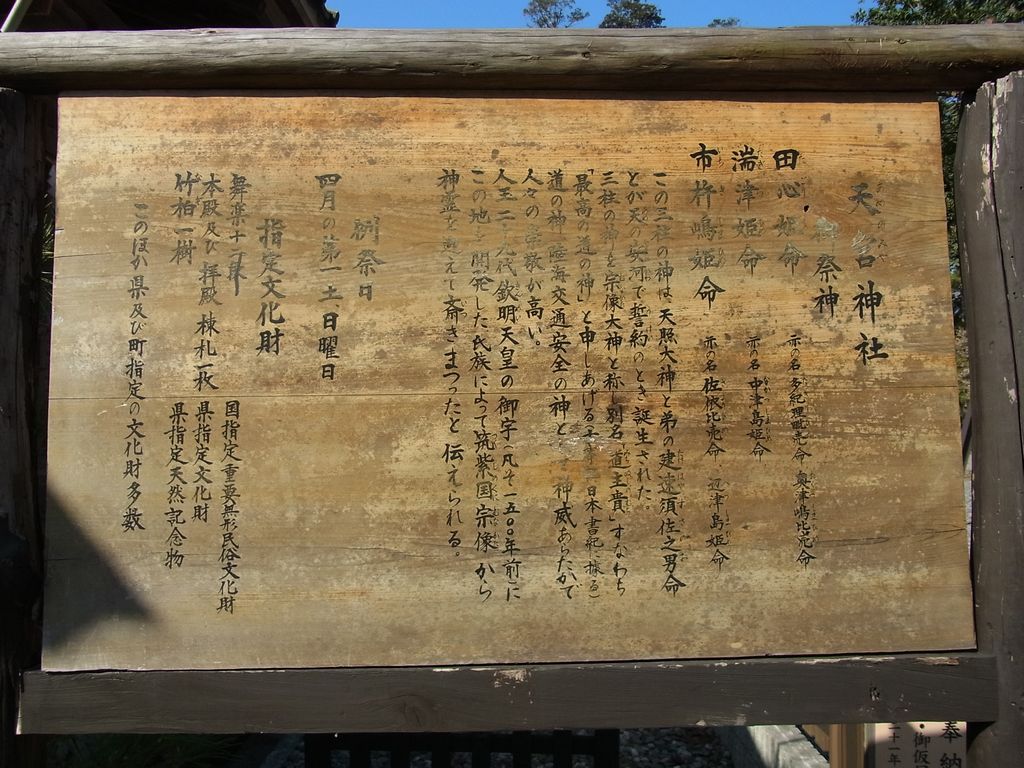 天宮神社
御祭神
田心姫命 亦の名 多紀理毗売命 奥津嶋比売命
湍津姫命 亦の名 中津島姫命
市杵嶋姫命 亦の名 佐依比売命 辺津島姫命
この三柱の神は天照大神と弟の建速須佐之男命
とが天の安河で誓約のとき誕生された。
三柱の神を宗像大神と称し別名「道主貴」すなわち
「最高の道の神」と申しあげる 日本書紀に拠る)
道の神 陸海交通安全の神と 神威あらたかで
人々の崇敬が高い。
人王二十九代欽明天皇の御宇(凡そ一五〇〇年前)に
この地を開発した氏族によって筑紫国宗像から
神霊を迎えて斎きまつったと伝えられる。
例祭日
四月の第一土日曜日
指定文化財
舞楽十二段 国指定重要無形民俗文化財
本殿及び拝殿 棟札一枚 県指定文化財
竹柏一樹 県指定天然記念物
このほか県及び町指定の文化財多数
奉納
・御仮
二十一年